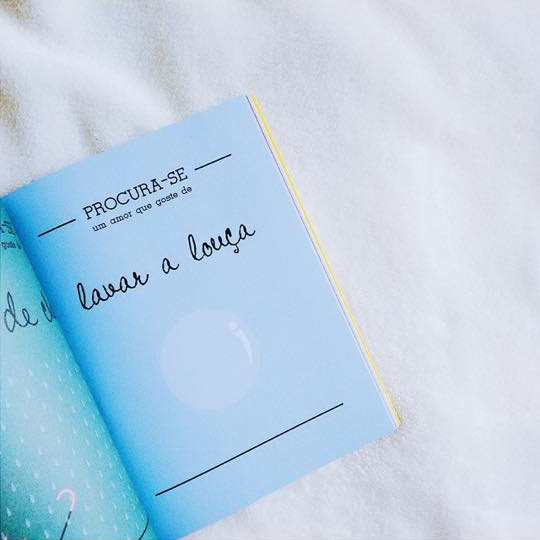 PROCURA-SE
um amor que goste de
lavar a louça
de